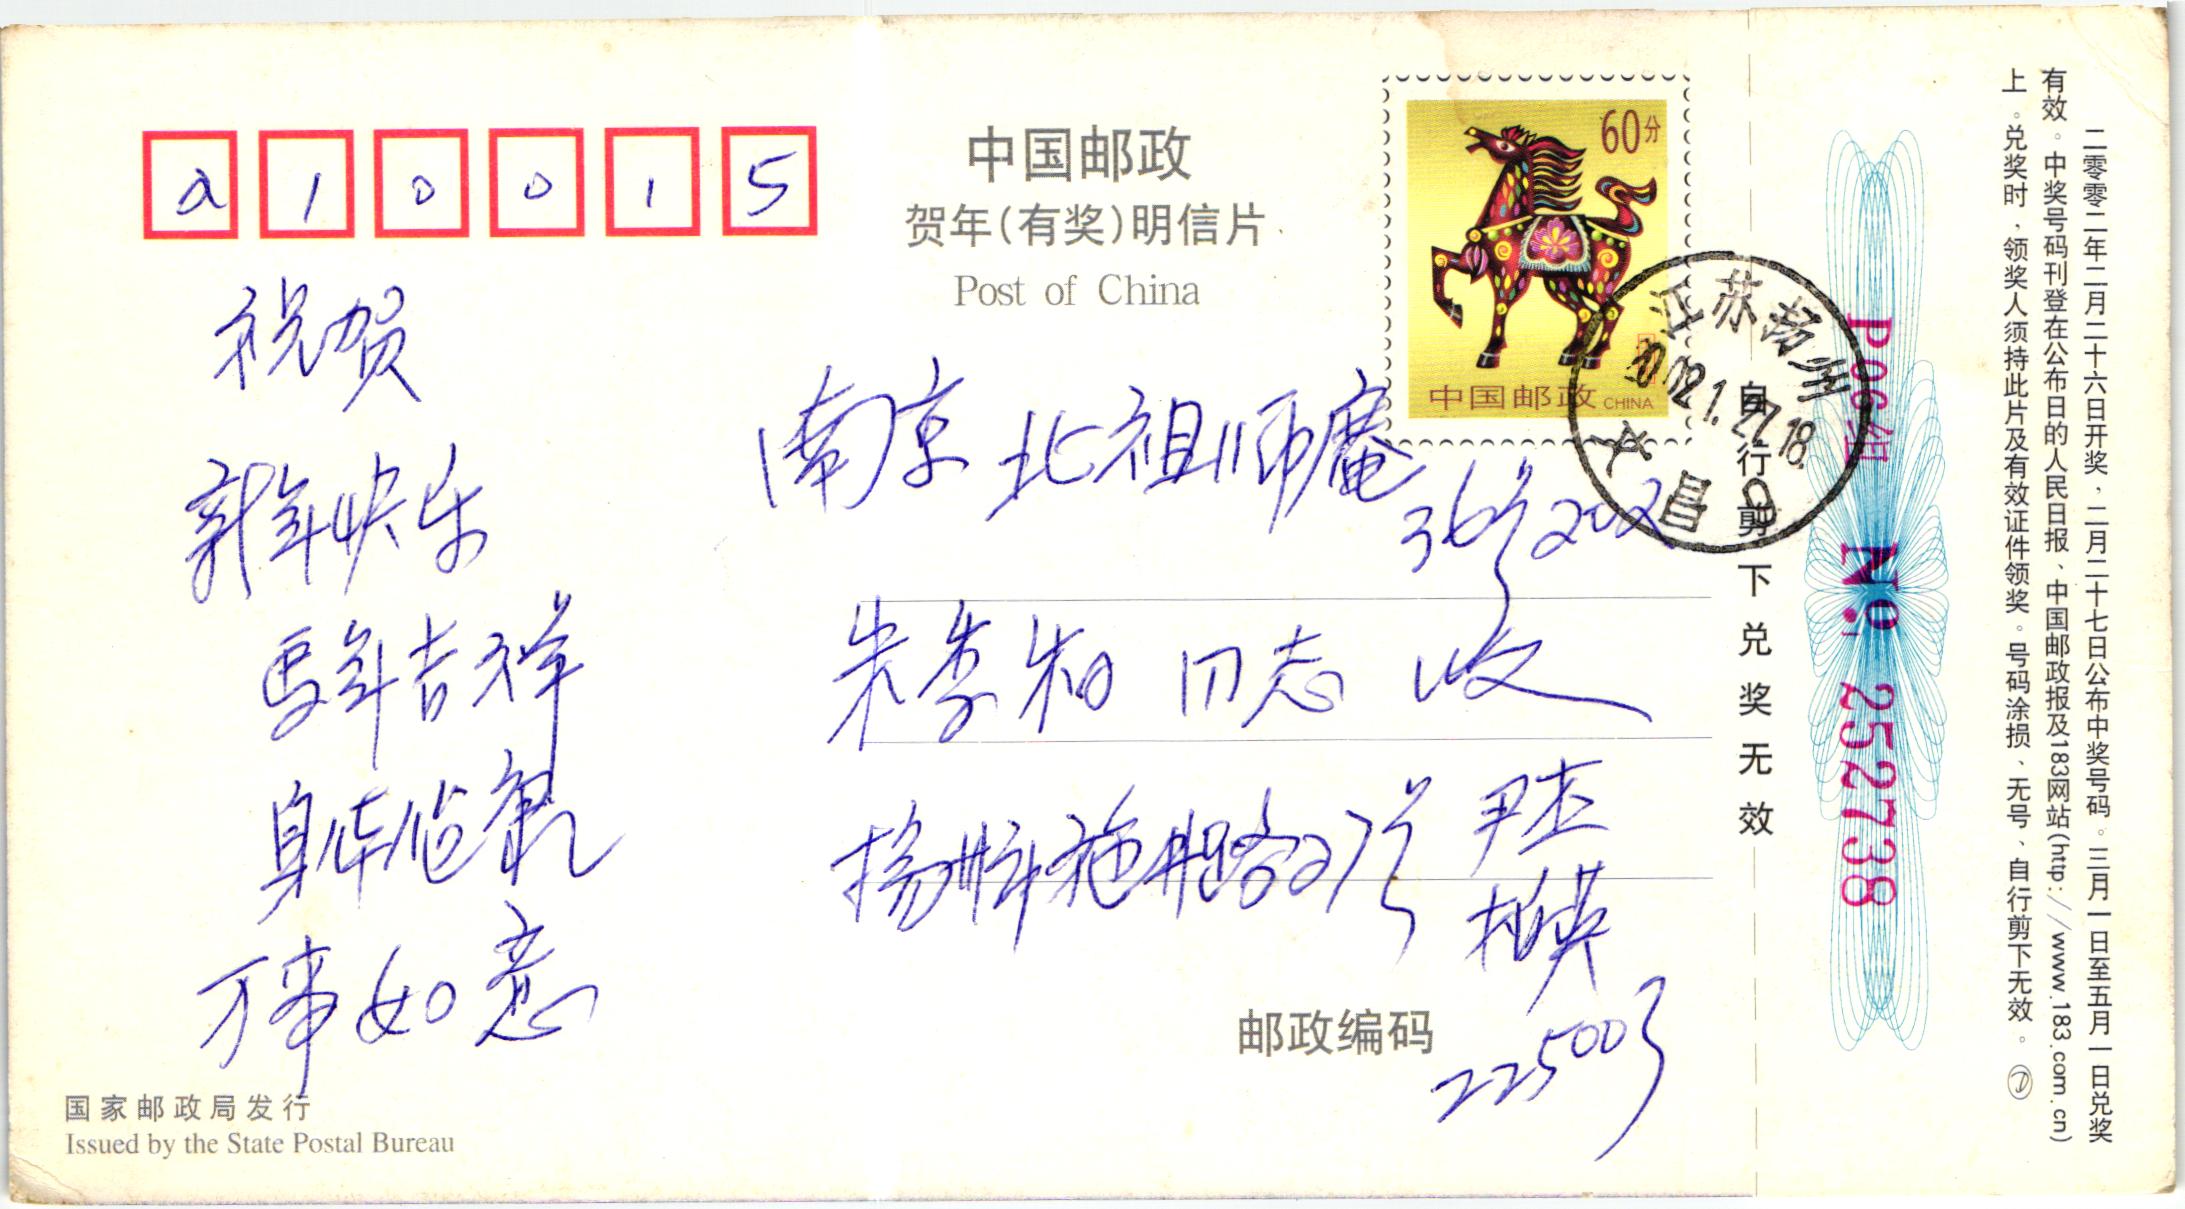 210015
中国邮政
贺年(有奖)明信片
Post of China
60分
中国邮政 CHINA
江苏扬州
2002.1.27.18.
文昌
祝贺
新年快乐
马年吉祥
身体健康
万事如意
南京北祖师庵
36号202
朱李和同志收
扬州市施井路27号
邮政编码
225003
国家邮政局发行
Issued by the State Postal Bureau
自行剪下兑奖无效
P06组 No. 252738
二零零二年二月二十六日开奖,二月二十七日公布中奖号码。三月一日至五月一日兑奖
有效。中奖号码刊登在公布日的人民日报、中国邮政报及183网站(http://www.183.com.cn)
上。兑奖时,领奖人须持此片及有效证件领奖。号码涂损、无号、自行剪下无效。